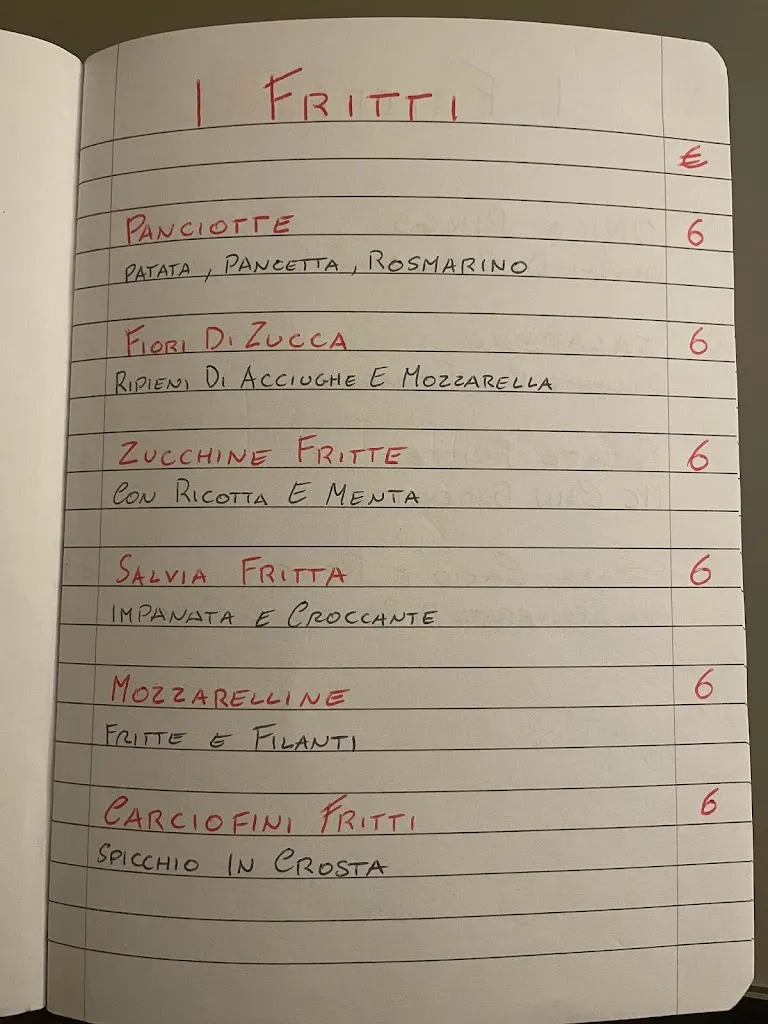 I FRITTI
€
PANCIOTTE 6
PATATA, PANCETTA, ROSMARINO
FIORI DI ZUCCA 6
RIPIENI DI ACCIUGHE E MOZZARELLA
ZUCCHINE FRITTE 6
CON RICOTTA E MENTA
SALVIA FRITTA 6
IMPANATA E CROCCANTE
MOZZARELLINE 6
FRITTE E FILANTI
CARCIOFINI FRITTI 6
SPICCHIO IN CROSTA